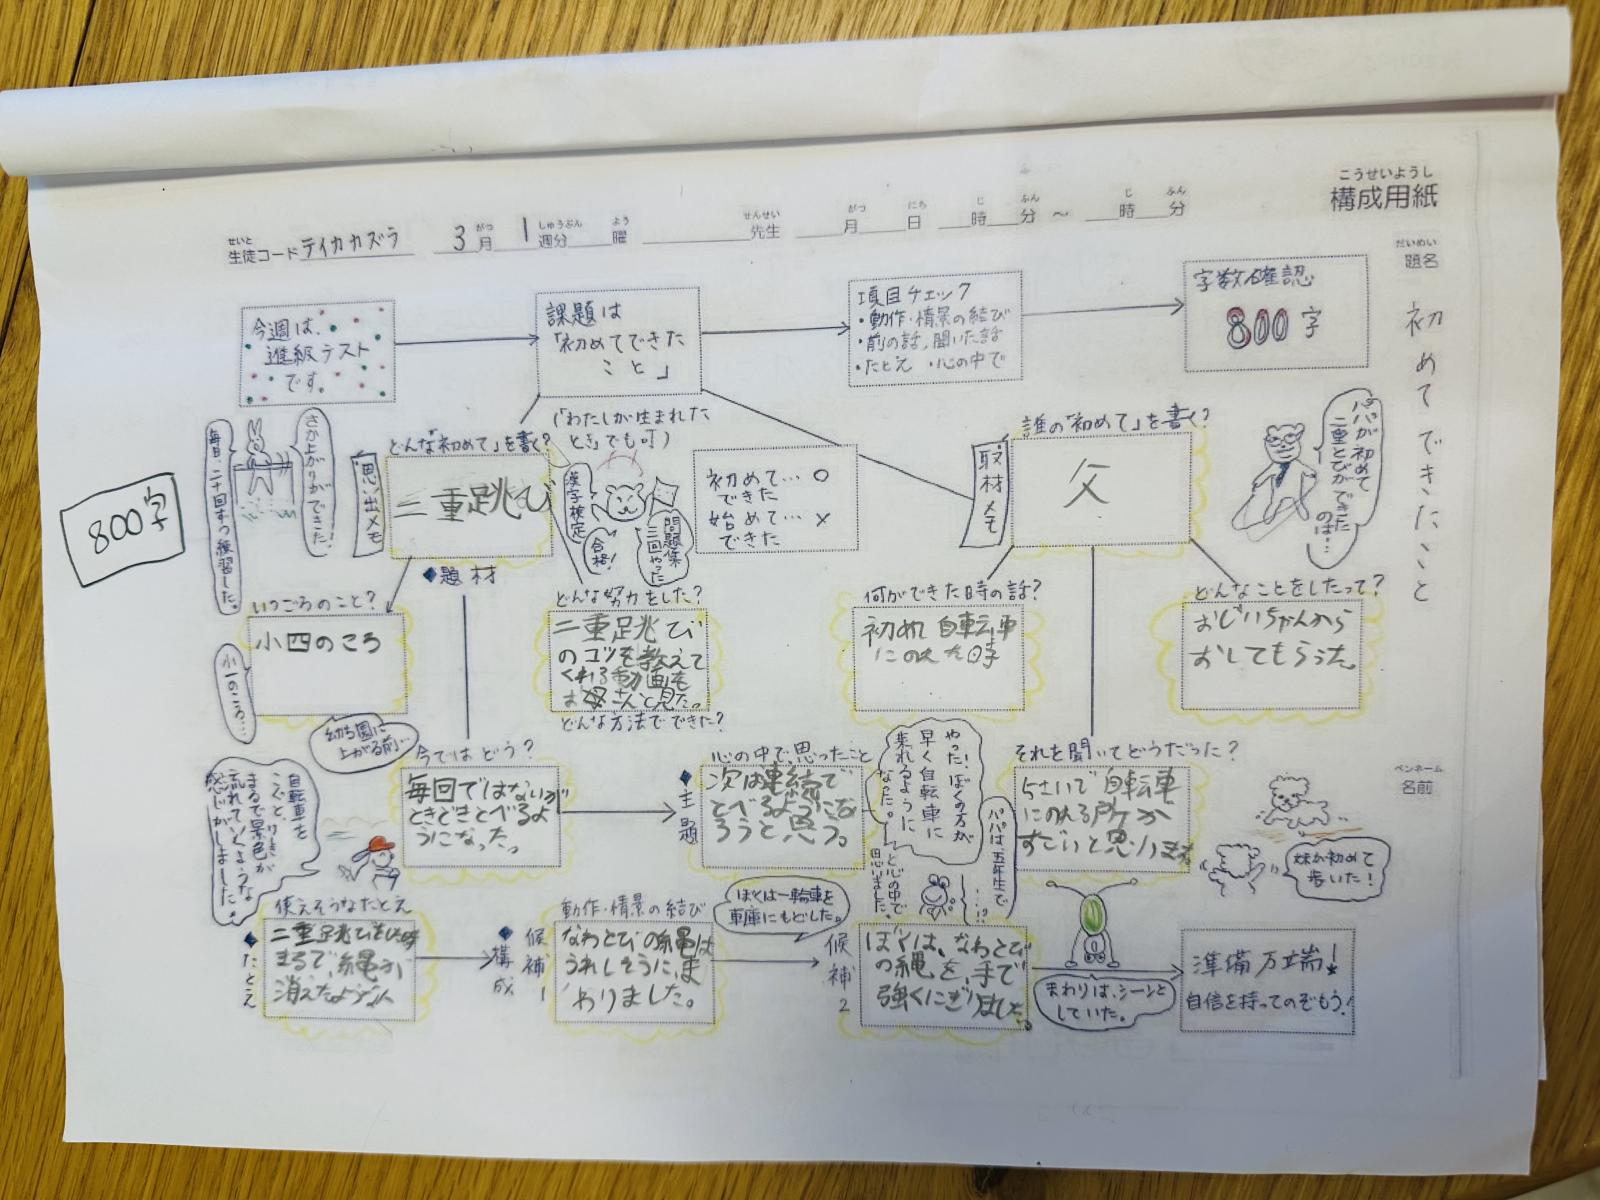 こうせいようし
構成用紙
せいと
生徒コード テイカカズラ 3月 1週分 曜 先生 月 日 時 分 〜 時 分
がつ しゅうぶん よう せんせい がつ にち じ ふん じ ふん
だいめい
題名
初めてできたこと
ペンネーム
名前
800字
今週は、
進級テスト
です。
課題は
「初めてできた
こと」
項目チェック
・動作・情景の結び
・前の話、聞いた話
・たとえ ・心の中で
字数確認
800字
(「わたしが生まれた
とき」でも可)
どんな「初めて」を書く?
思い出メモ
二重跳び
◆題材
さか上がりができた。
毎日、二十回ずつ練習した。
漢字検定
合格!
問題集
三回やった
初めて…○
できた
始めて…×
できた
誰の「初めて」を書く?
取材メモ
父
パパが初めて
二重とびができた
のは…
いつごろのこと?
小四のころ
小一のころ…
幼ち園に
上がる前…
どんな努力をした?
二重跳び
のコツを教えて
くれる動画を
お母さんと見た。
どんな方法でできた?
何ができた時の話?
初めて自転車
にのれた時
どんなことをしたって?
おじいちゃんから
おしてもらった。
今ではどう?
毎回ではないが
ときどきとべるよ
うになった。
◆主題
心の中で思ったこと
次は連続で
とべるようにな
ろうと思う。
やった!ぼくの方が
早く自転車に
乗れるように
なった。
と心の中で
思いました。
パパは五年生で
…!?
それを聞いてどうだった?
5さいで自転車
にのれる所が
すごいと思います
妹が初めて
歩いた!
自転車を
こぐと、
まるで景色が
流れていくような
感じがしました。
使えそうなたとえ
◆たとえ
二重跳びをした時
まるで、縄が
消えたようだ
◆構成
候補1
動作・情景の結び
なわとびの縄は
うれしそうに、ま
わりました。
ぼくは一輪車を
車庫にもどした。
候補2
ぼくは、なわとび
の縄を、手で
強くにぎりました。
まわりは、シーンと
していた。
準備万端!
自信を持ってのぞもう!